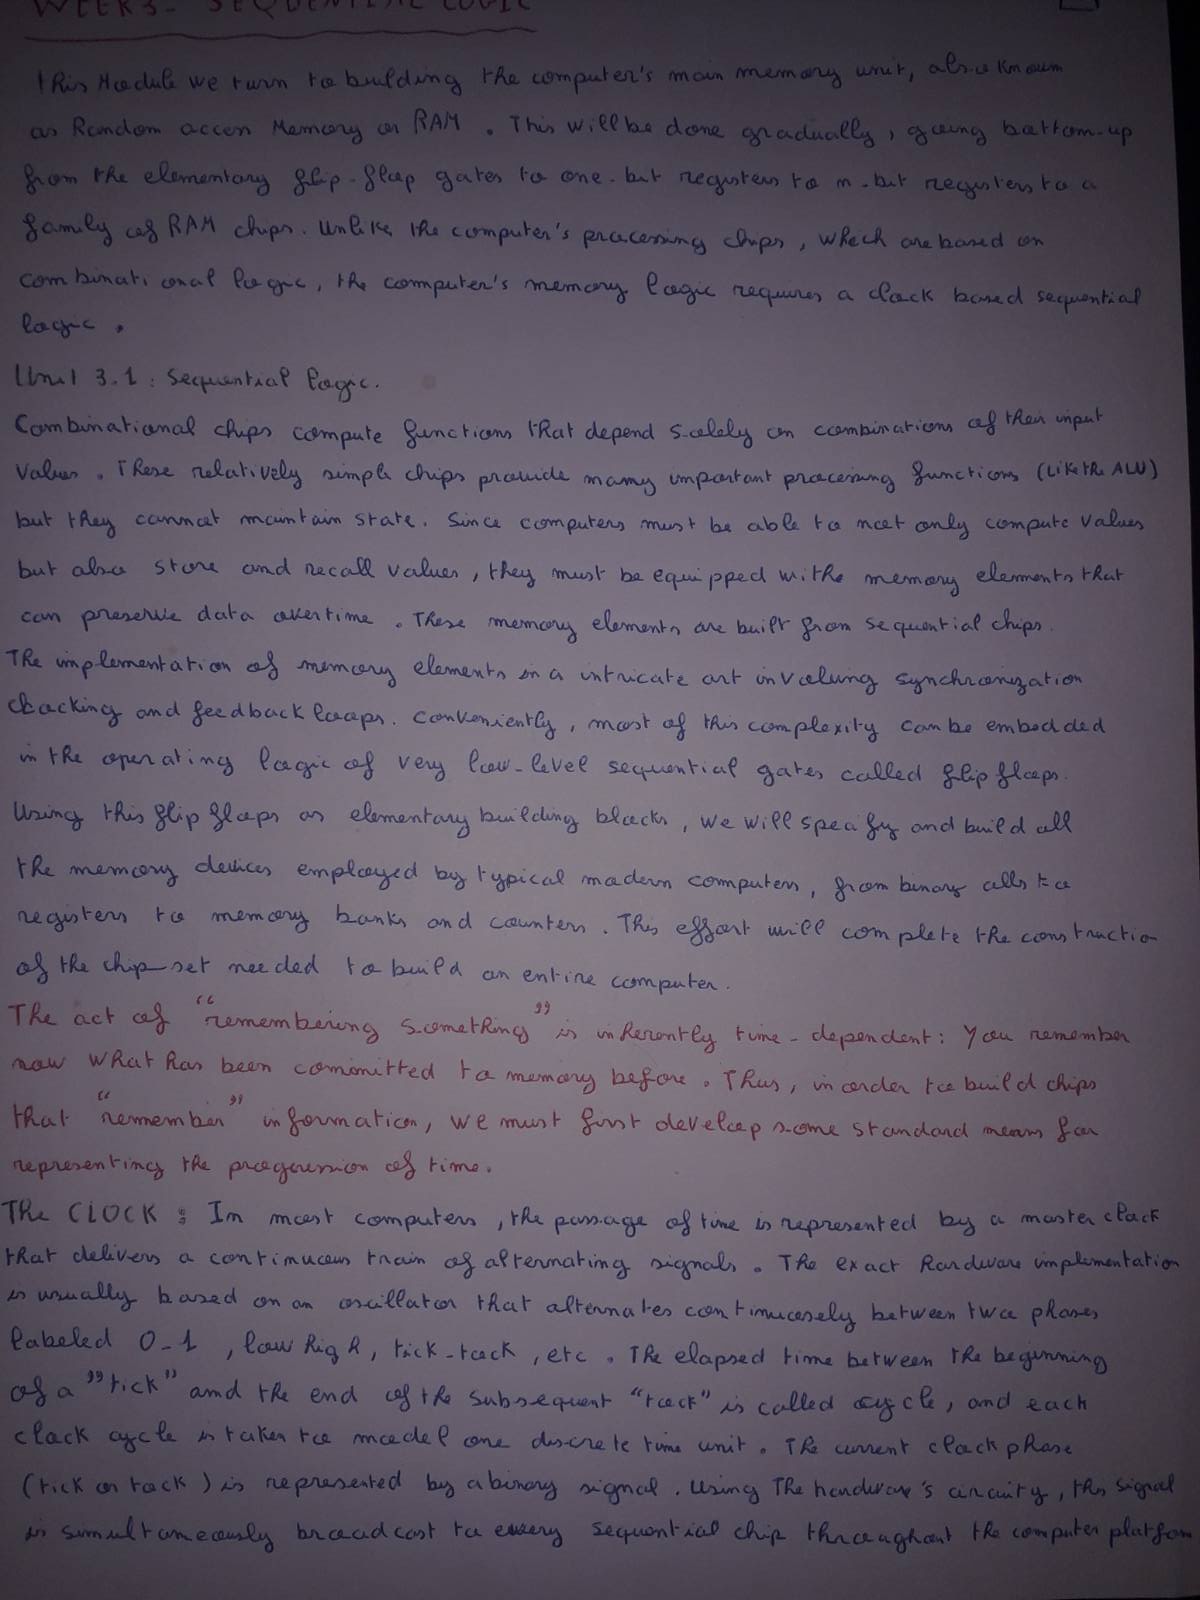 WEEK 3 - SEQUENTIAL LOGIC
This Module we turn to building the computer's main memory unit, also known
as Random access Memory or RAM. This will be done gradually, going bottom-up
from the elementary flip-flop gates to one-bit registers to n-bit registers to a
family of RAM chips. Unlike the computer's processing chips, which are based on
combinational logic, the computer's memory logic requires a clock based sequential
logic.
Unit 3.1: Sequential logic.
Combinational chips compute functions that depend solely on combinations of their input
values. These relatively simple chips provide many important processing functions (Like the ALU)
but they cannot maintain state. Since computers must be able to not only compute values
but also store and recall values, they must be equipped withe memory elements that
can preserve data overtime. These memory elements are built from sequential chips.
The implementation of memory elements in a intricate art involving synchronization
clocking and feedback loops. Conveniently, most of this complexity can be embedded
in the operating logic of very low-level sequential gates called flip flops.
Using this flip flops as elementary building blocks, we will specify and build all
the memory devices employed by typical modern computers, from binary cells to
registers to memory banks and counters. This effort will complete the constructio
of the chip-set needed to build an entire computer.
The act of "remembering something" is inherently time-dependent: You remember
now what has been committed to memory before. Thus, in order to build chips
that "remember" information, we must first develop some standard means for
representing the progression of time.
The CLOCK: In most computers, the passage of time is represented by a master clock
that delivers a continuous train of alternating signals. The exact hardware implementation
is usually based on an oscillator that alternates continuously between two phases
labeled 0-1, low high, tick-tock, etc. The elapsed time between the beginning
of a "tick" and the end of the subsequent "tock" is called cycle, and each
clock cycle is taken to model one discrete time unit. The current clock phase
(tick or tock) is represented by a binary signal. Using The hardware's circuity, this signal
is simultaneously broadcast to every sequential chip throughout the computer platform